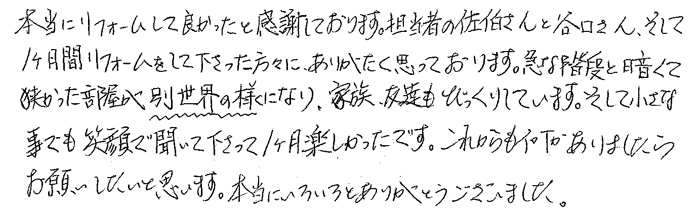 本当にリフォームして良かったと感謝しております。担当者の佐伯さんと谷口さん、そして
1ヶ月間リフォームをして下さった方々に、ありがたく思っております。急な階段と暗くて
狭かった部屋が、別世界の様になり、家族、友達もびっくりしています。そして小さな
事でも笑顔で聞いて下さって1ヶ月楽しかったです。これからも何かありましたら
お願いしたいと思います。本当にいろいろとありがとうございました。